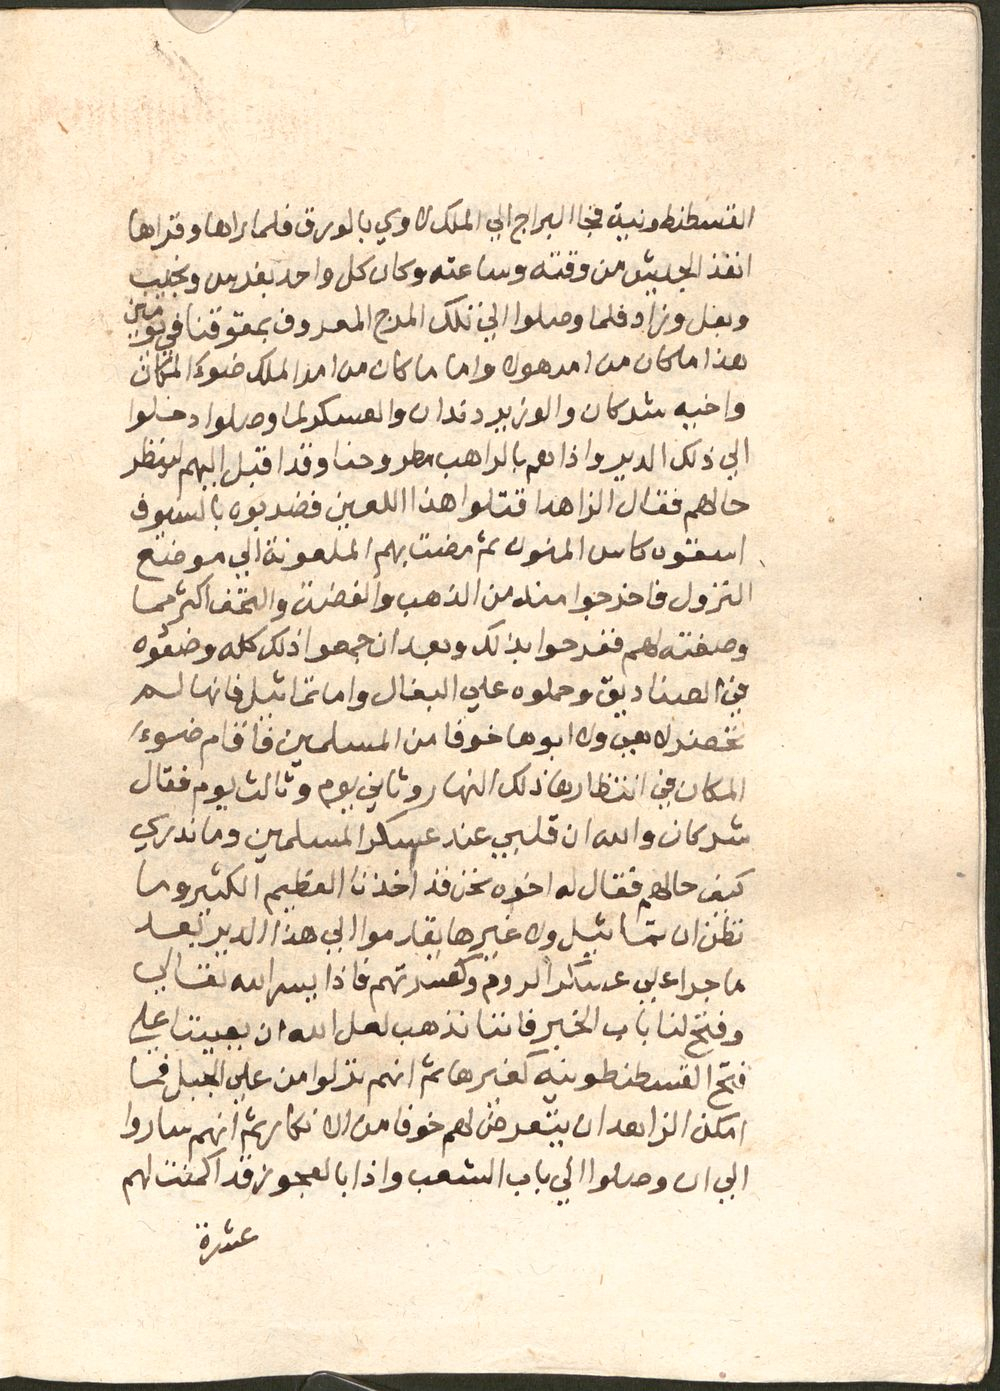 القسطنطونية فجا البراج الي الملك لاوي بالورق فلما راها وقراها
انفذ الجيش من وقته وساعته وكان كل واحد بفرس ونجيب
وبغل وزاد فلما وصلوا الي تلك المرج المعروف بمعوقنا في يومين
هذا ما كان من امر هولا واما ما كان من امر الملك ضوء المكان
واخيه شركان والوزير دندان والعسكر لما وصلوا دخلوا
الي ذلك الدير واذا هم بالراهب مطروحنا وقد اقبل اليهم لينظر
حالهم فقال الزاهد اقتلوا هذا اللعين فضربوه بالسيوف
اسقوه كاس المنون ثم مضت بهم الملعونة الي موضع
النزول فاخرجوا منه من الذهب والفضة والتحف اكثر مما
وصفته لهم ففرحوا بذلك وبعد ان جمعوا ذلك كله وضعوه
في الصناديق وحملوه علي البغال واما تماثيل فانها لم
تحضر لا هي ولا ابوها خوفا من المسلمين فاقام ضوء
المكان في انتظارها ذلك النهار وثاني يوم وثالث يوم فقال
شركان والله ان قلبي عند عسكر المسلمين وما ندري
كيف حالهم فقال له اخوه نحن قد اخذنا العظيم الكثير وما
نظن ان تماثيل ولا غيرها يقدموا الي هذا الدير بعد
ما جرا علي عسكر الروم وكسرتهم فاذا يسر الله تعالي
وفتح لنا باب الخير فاننا نذهب لعل الله ان يعيننا علي
فتح القسطنطونية كغيرها ثم انهم نزلوا من علي الجبل فما
امكن الزاهد ان يتعرض لهم خوفا من الانكار ثم انهم ساروا
الي ان وصلوا الي باب الشعب واذا بالعجوز قد اكمنت لهم
عشرة